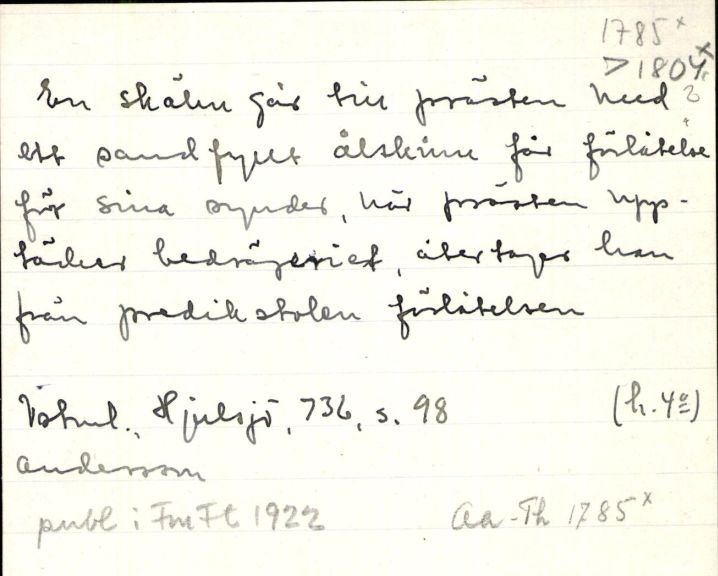 1785ˣ
> 1804ˣ
En skälm går till prästen med ?
ett sandfyllt ålskinn får förlåtelse
för sina synder, när prästen upp-
täcker bedrägeriet, återtager han
från predikstolen förlåtelsen
Vstml., Hjulsjö, 736, s. 98 (h. 4º)
Andersson
publ i FmFt 1922 Aa-Th 1785ˣ